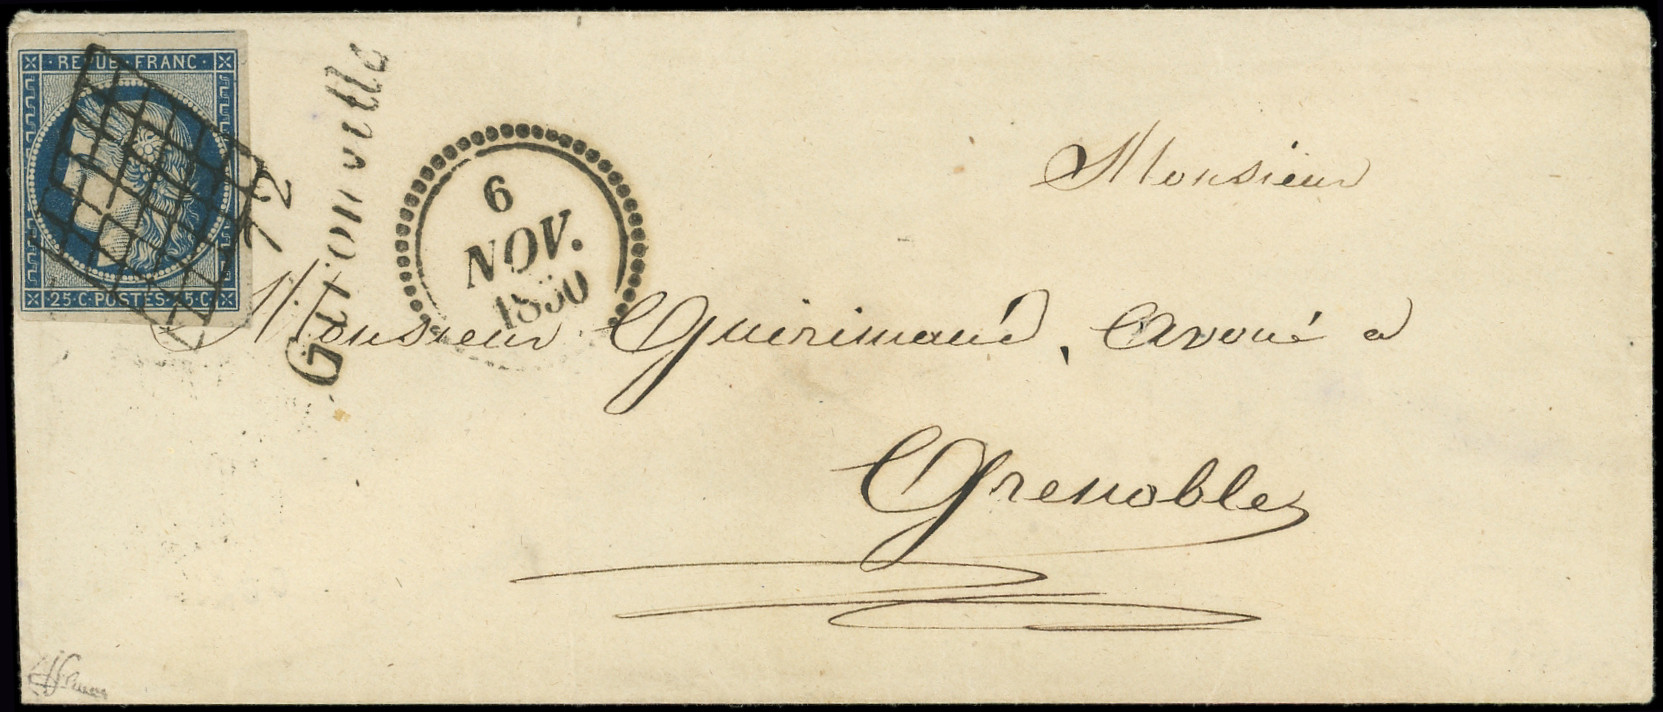 REPUB · FRANC ·
25 · C · POSTES · 25 · C ·
72
Gironville
6
NOV.
1850
Monsieur
Monsieur Guérimand, Avoué a
Grenoble